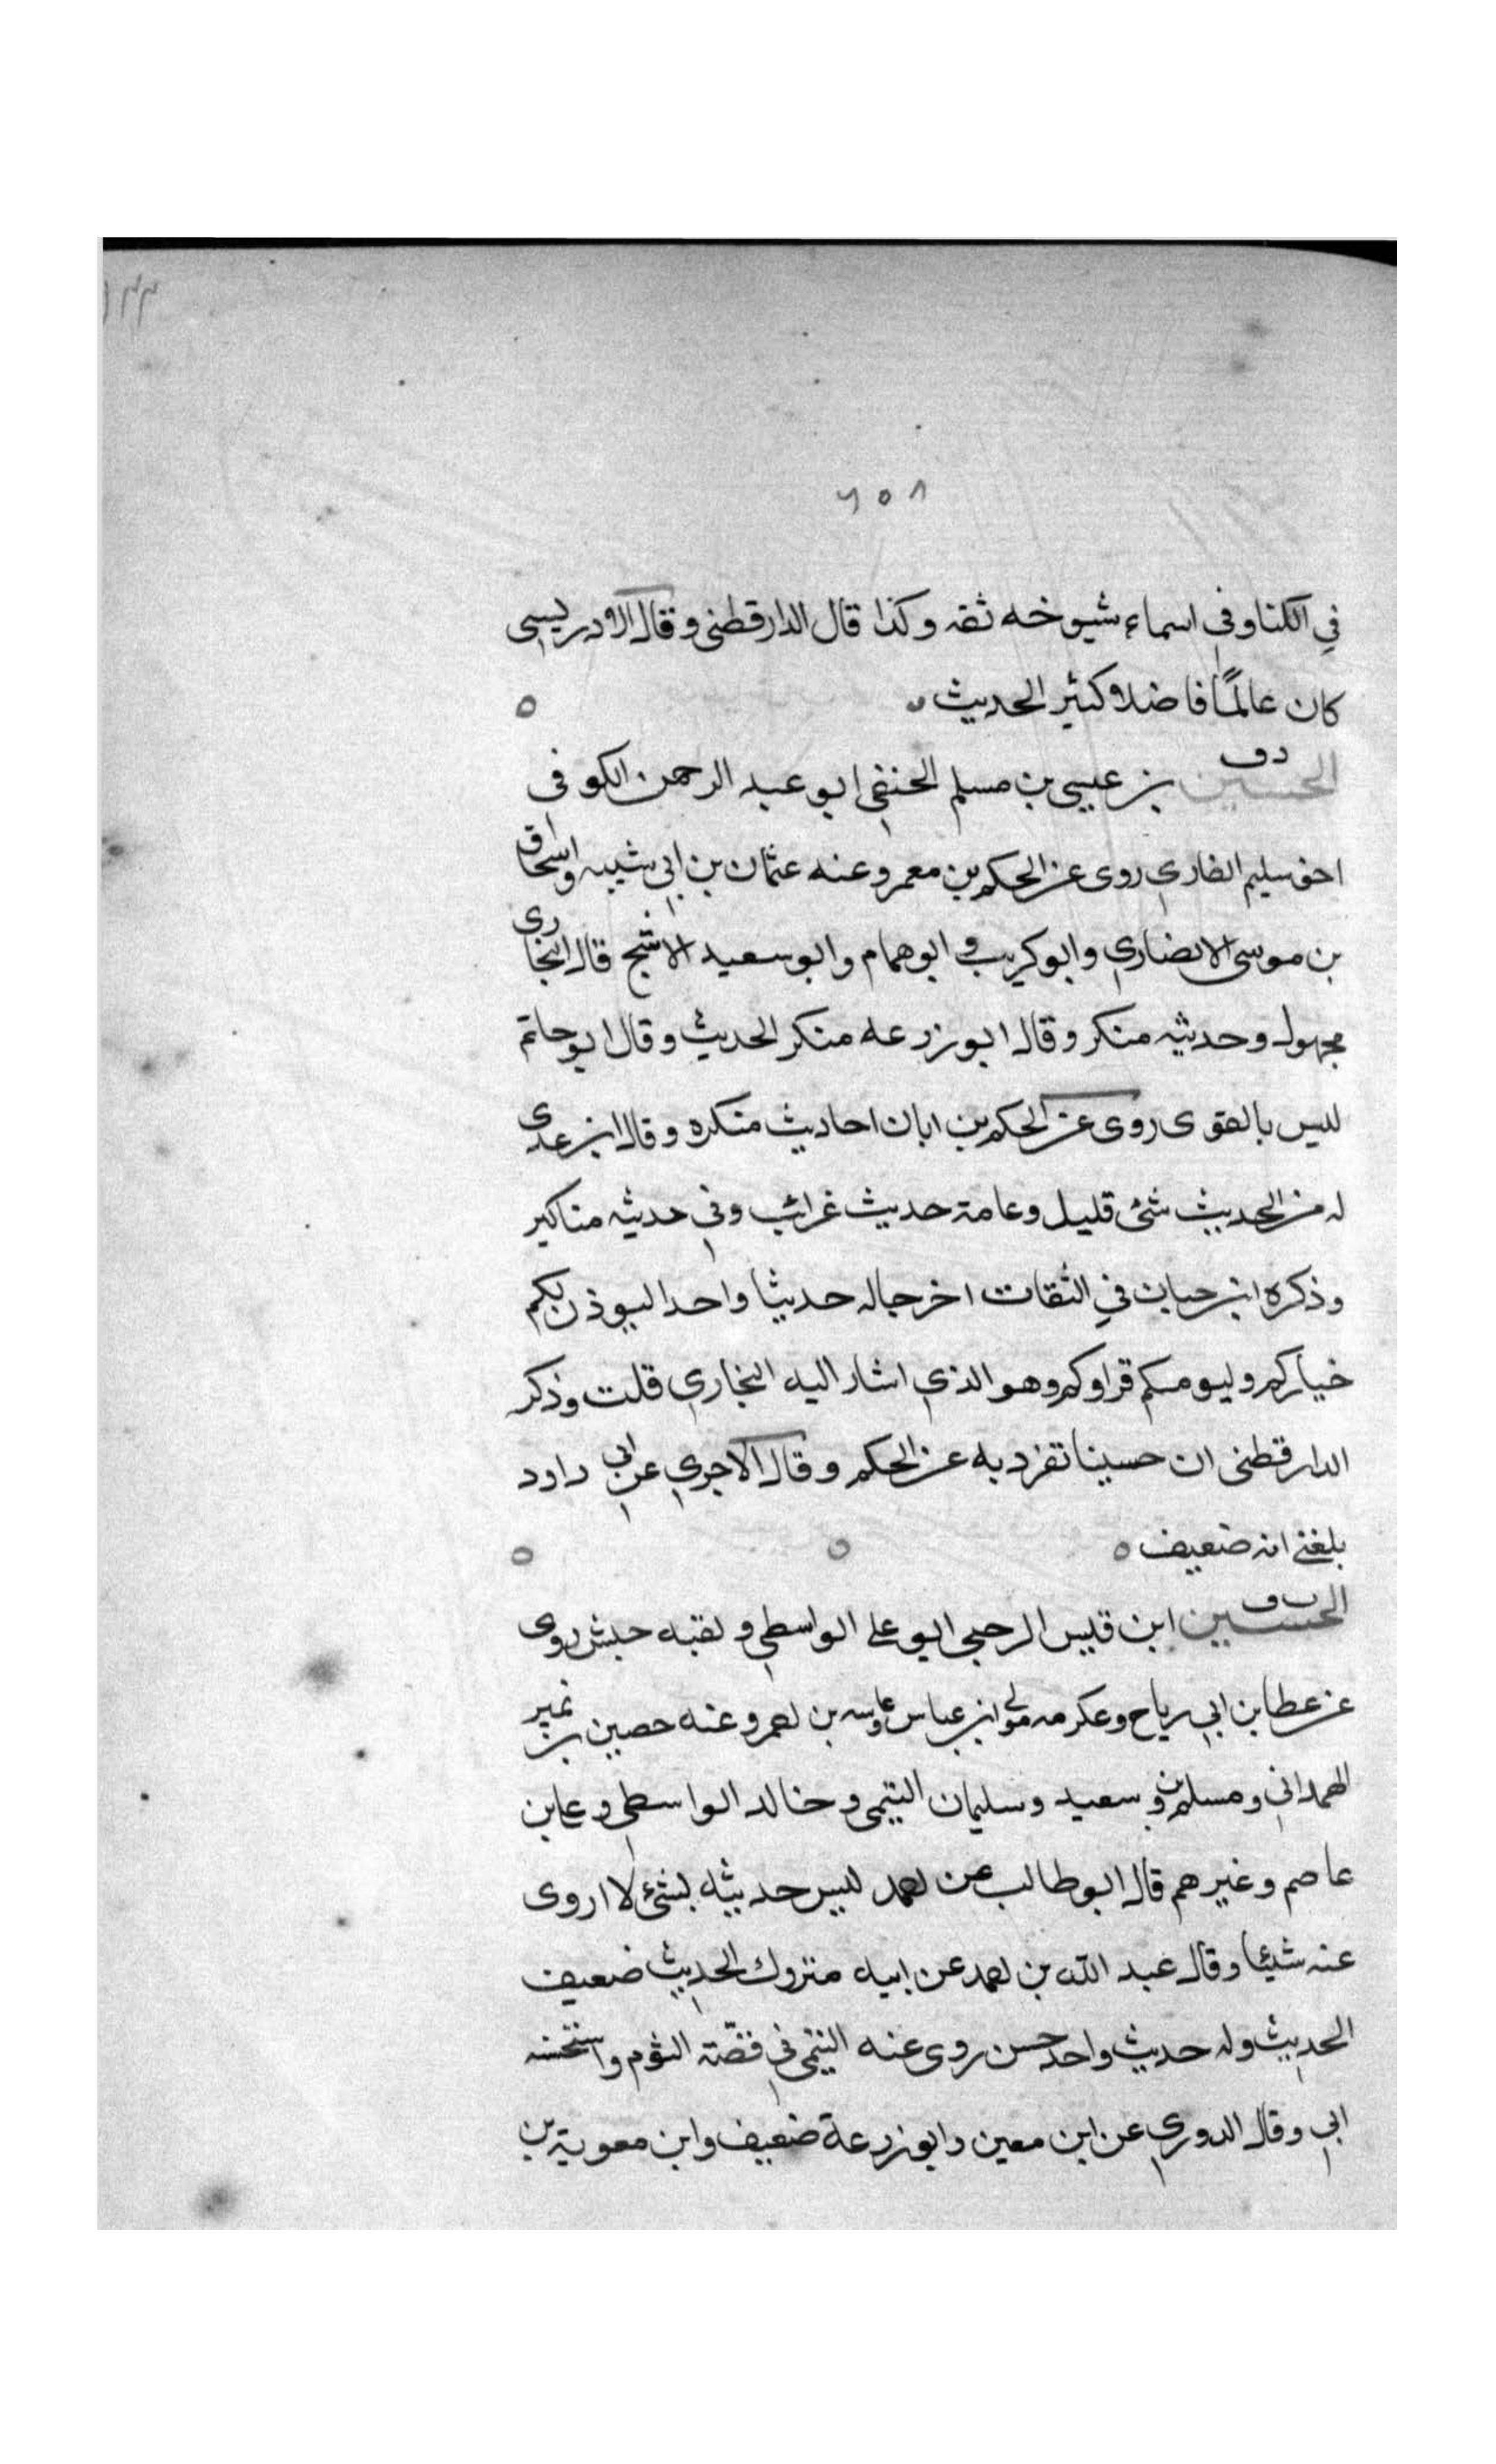 ٦٥٨
في الكنا وفي اسماء شيوخه ثقه وكذا قال الدارقطني وقال الادريسي
كان عالمًا فاضلا كثير الحديث
الحسين دق بن عيسى بن مسلم الحنفي ابو عبد الرحمن الكوفي
اخو سليم القاري روى عن الحكم بن معمر وعنه عثمان بن ابي شيبه واسحاق
بن موسى الانصاري وابو كريب وابو همام وابو سعيد الاشج قال البخاري
مجهول وحديثه منكر وقال ابو زرعه منكر الحديث وقال ابو حاتم
ليس بالقوى روى عن الحكم بن ابان احاديث منكره وقال ابن عدى
له من الحديث شئ قليل وعامة حديث غرائب وفي حديثه مناكير
وذكره ابن حبان في الثقات اخرجا له حديثا واحدا ليوذن لكم
خياركم وليومكم قراوكم وهو الذي اشار اليه البخاري قلت وذكر
الدارقطني ان حسينا تفرد به عن الحكم وقال الاجري عن ابي داود
بلغني انه ضعيف
الحسين ابن قيس الرحبي ابو علي الواسطي ولقبه حنش روى
عن عطا بن ابي رباح وعكرمه مولى ابن عباس بن احمر وعنه حصين بن نمير
الهمداني ومسلم بن سعيد وسليمان التيمي وخالد الواسطي وعلي بن
عاصم وغيرهم قال ابو طالب عن احمد ليس حديثه بشئ لا اروى
عنه شيئا وقال عبد الله بن احمد عن ابيه متروك الحديث ضعيف
الحديث وله حديث واحد حسن روى عنه التيمي في قصّة الثوم واستحسنه
ابي وقال الدوري عن ابن معين وابو زرعة ضعيف وابن معوية بن